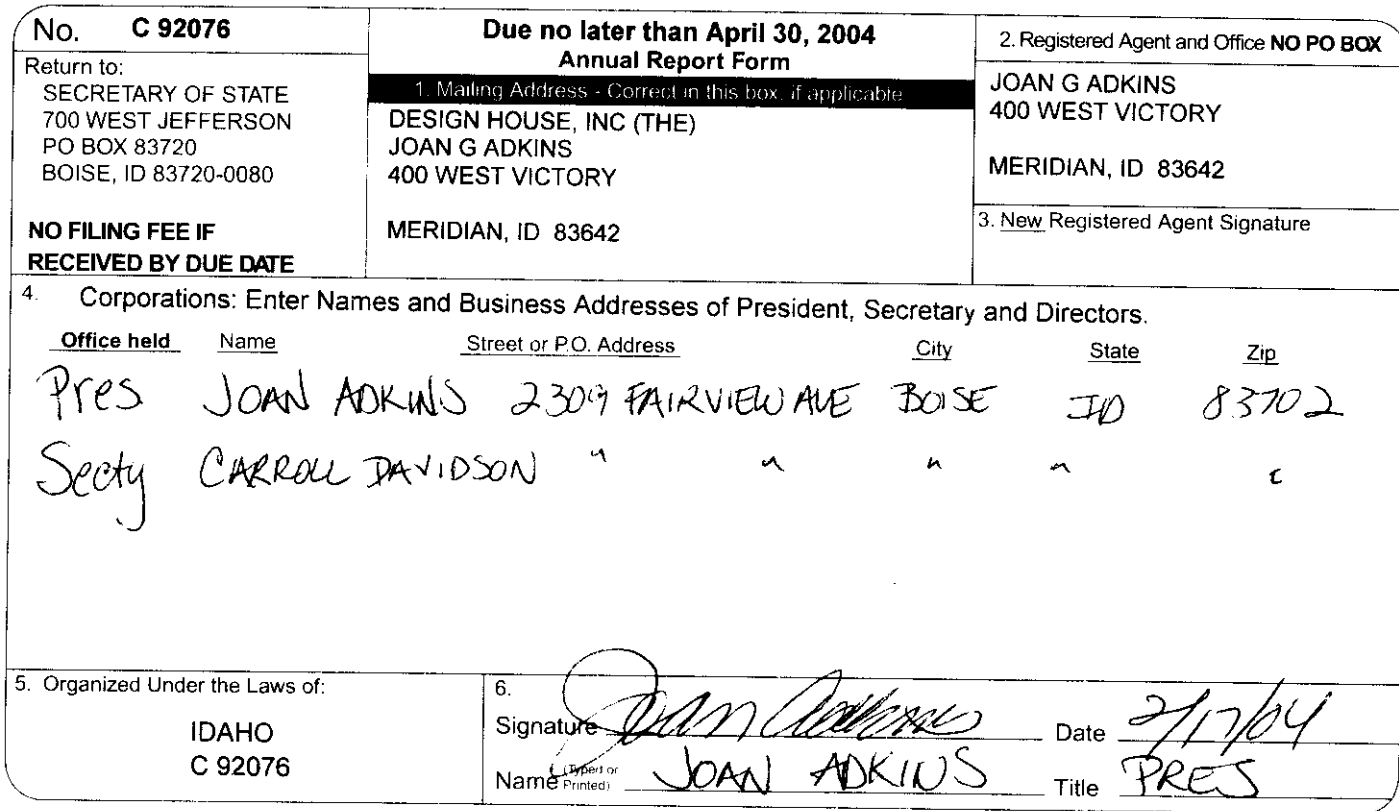 No. C 92076
Return to:
SECRETARY OF STATE
700 WEST JEFFERSON
PO BOX 83720
BOISE, ID 83720-0080
NO FILING FEE IF
RECEIVED BY DUE DATE
Due no later than April 30, 2004
Annual Report Form
1. Mailing Address - Correct in this box, if applicable
DESIGN HOUSE, INC (THE)
JOAN G ADKINS
400 WEST VICTORY
MERIDIAN, ID 83642
2. Registered Agent and Office NO PO BOX
JOAN G ADKINS
400 WEST VICTORY
MERIDIAN, ID 83642
3. New Registered Agent Signature
4. Corporations: Enter Names and Business Addresses of President, Secretary and Directors.
Office held Name Street or P.O. Address City State Zip
Pres JOAN ADKINS 2309 FAIRVIEW AVE BOISE ID 83702
Secty CARROLL DAVIDSON " " " " "
5. Organized Under the Laws of:
IDAHO
C 92076
6.
Signature Joan Adkins Date 2/17/04
Name (Typed or Printed) JOAN ADKINS Title PRES